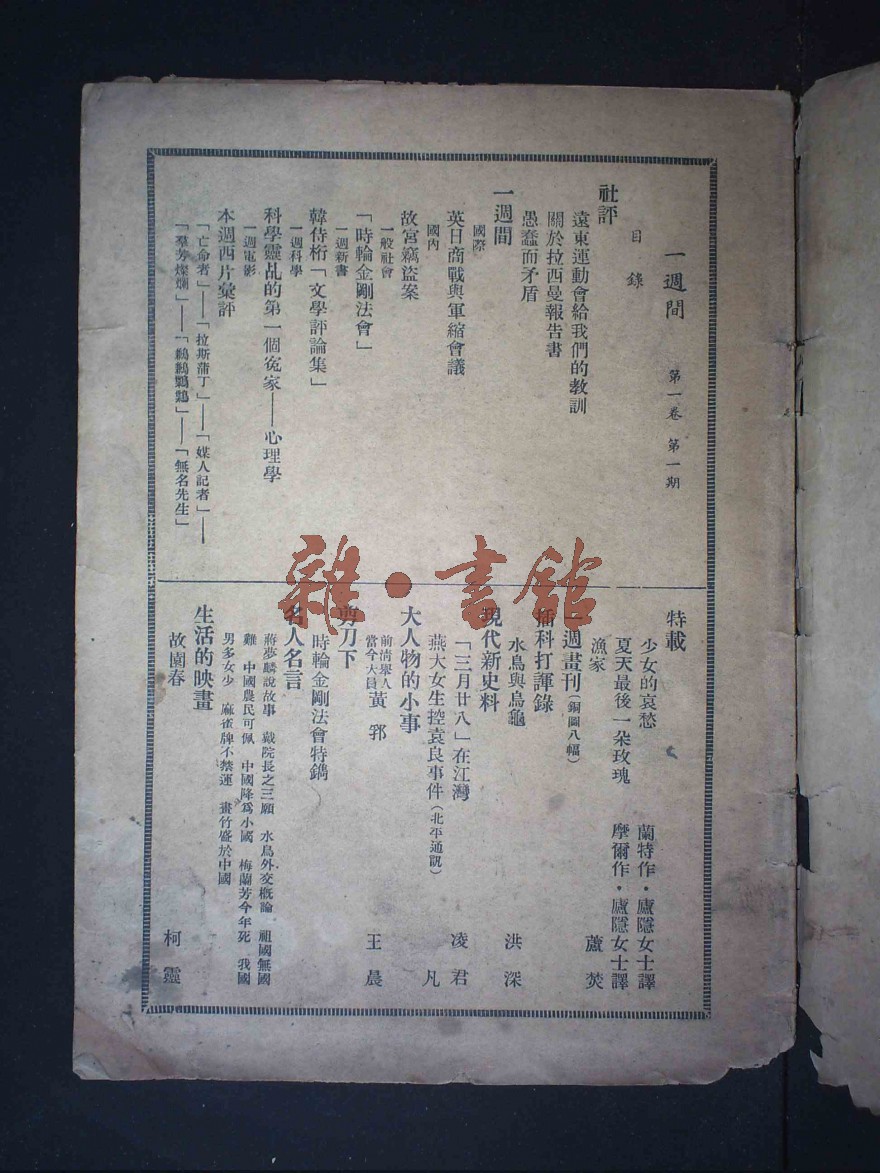 一週間　第一卷　第一期
目錄
社評
遠東運動會給我們的敎訓
關於拉西曼報告書
愚蠢而矛盾
一週間
國際
英日商戰與軍縮會議
國內
故宮竊盜案
一般社會
「時輪金剛法會」
一週新書
韓侍桁「文學評論集」
一週科學
科學靈乩的第一個寃家——心理學
一週電影
本週西片彙評
「亡命者」——「拉斯蒲丁」——「媒人記者」——
「羣芳燦爛」——「鶼鶼鰈鰈」——「無名先生」
特載
少女的哀愁　蘭特作・廬隱女士譯
夏天最後一朵玫瑰　摩爾作・廬隱女士譯
漁家　蘆焚
一週畫刊（銅圖八幅）
插科打諢錄
水鳥與烏龜　洪深
現代新史料
「三月廿八」在江灣　凌君
燕大女生控袁良事件（北平通訊）　凡
大人物的小事
前淸舉人
當今大員　黃郛　王晨
剪刀下
時輪金剛法會特鐫
名人名言
蔣夢麟說故事　戴院長之三願　水鳥外交槪論　祖國無國
難　中國農民可佩　中國降爲小國　梅蘭芳今年死　我國
男多女少　麻雀牌不禁運　畫竹盛於中國
生活的映畫
故園春　柯靈
雜・書館